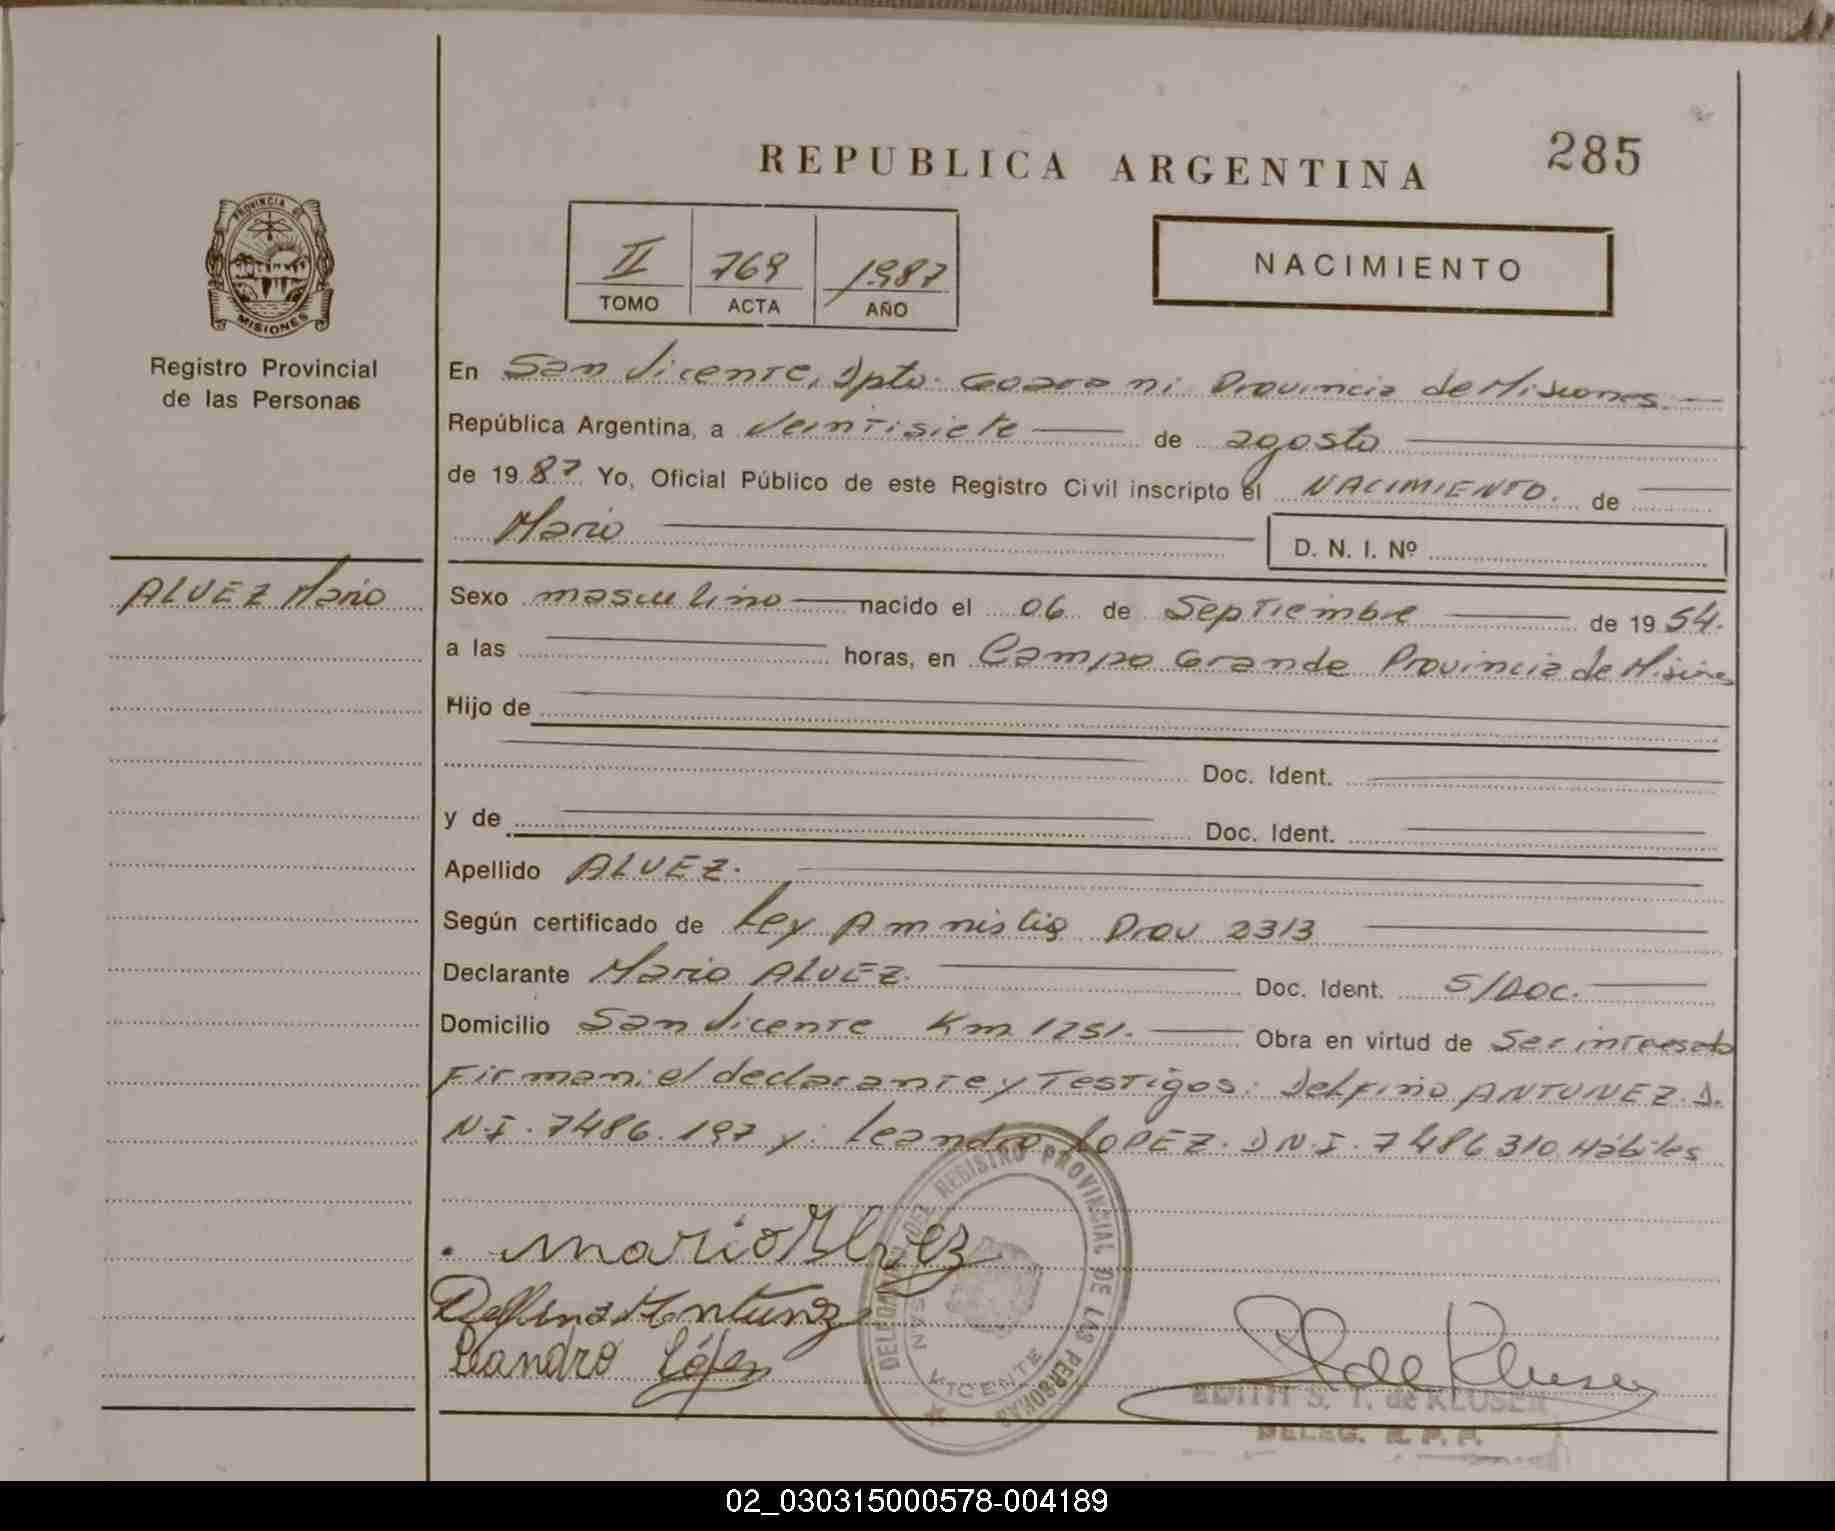 REPUBLICA ARGENTINA
285
PROVINCIA DE
MISIONES
Registro Provincial
de las Personas
II 769 1987
TOMO ACTA AÑO
NACIMIENTO
En San Vicente, Dpto. Guarani Provincia de Misiones
República Argentina, a veintisiete de agosto
de 1987 Yo, Oficial Público de este Registro Civil inscripto el NACIMIENTO. de
Mario D. N. I. Nº
ALVEZ Mario
Sexo masculino nacido el 06 de Septiembre de 1954.
a las horas, en Campo Grande Provincia de Misiones
Hijo de
Doc. Ident.
y de Doc. Ident.
Apellido ALVEZ.
Según certificado de Ley Amnistia Prov 2313
Declarante Mario ALVEZ. Doc. Ident. S/DOC.
Domicilio San Vicente Km 1251. Obra en virtud de Ser interesado
Firman: el declarante y Testigos: Delfino ANTUNEZ. D.
N.I. 7486.197 y: Leandro LOPEZ. DN.I. 7486310 Hábiles
Mario Alvez
Delfino Antunez
Leandro López
DELEGACION DEL REGISTRO PROVINCIAL DE LAS PERSONAS
SAN VICENTE
EDITH S. T. de KLUSER
DELEG. R. P. P.
02_030315000578-004189